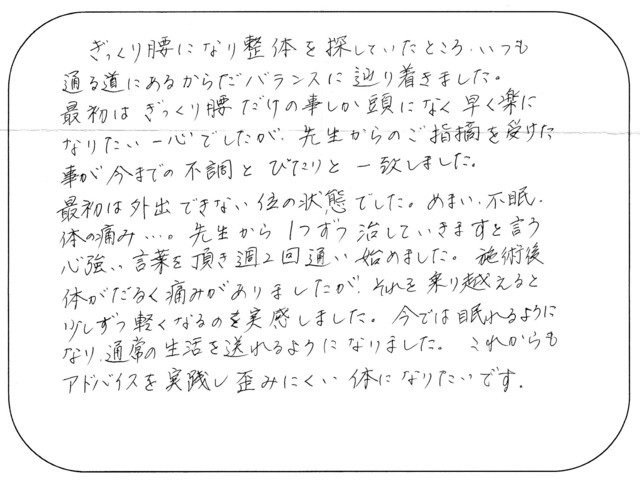 ぎっくり腰になり整体を探していたところ、いつも
通る道にあるからだバランスに辿り着きました。
最初はぎっくり腰だけの事しか頭になく早く楽に
なりたい一心でしたが、先生からのご指摘を受けた
事が今までの不調とぴたりと一致しました。
最初は外出できない位の状態でした。めまい、不眠、
体の痛み…。先生から1つずつ治していきますと言う
心強い言葉を頂き週2回通い始めました。施術後
体がだるく痛みがありましたが、それを乗り越えると
少しずつ軽くなるのを実感しました。今では眠れるように
なり、通常の生活を送れるようになりました。これからも
アドバイスを実践し歪みにくい体になりたいです.